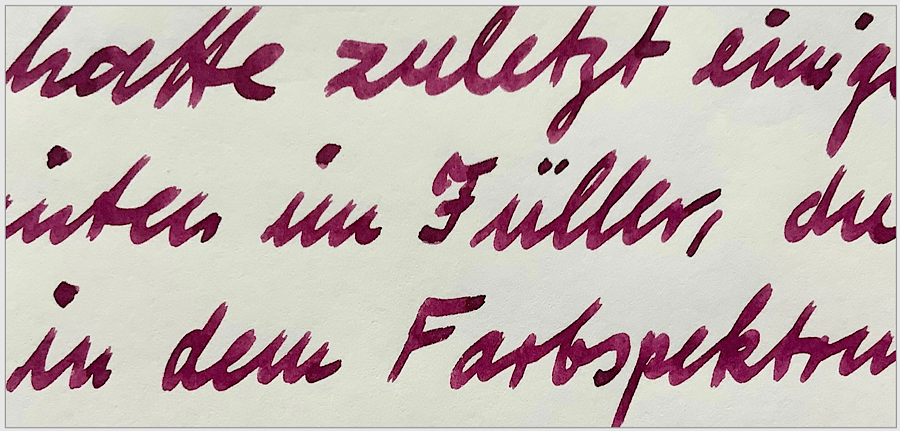 hatte zuletzt einige
inten im Füller, die
in dem Farbspektru